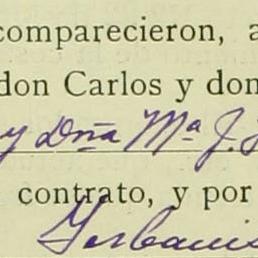 comparecieron, a
don Carlos y don
y Dña Mª J.
contrato, y por